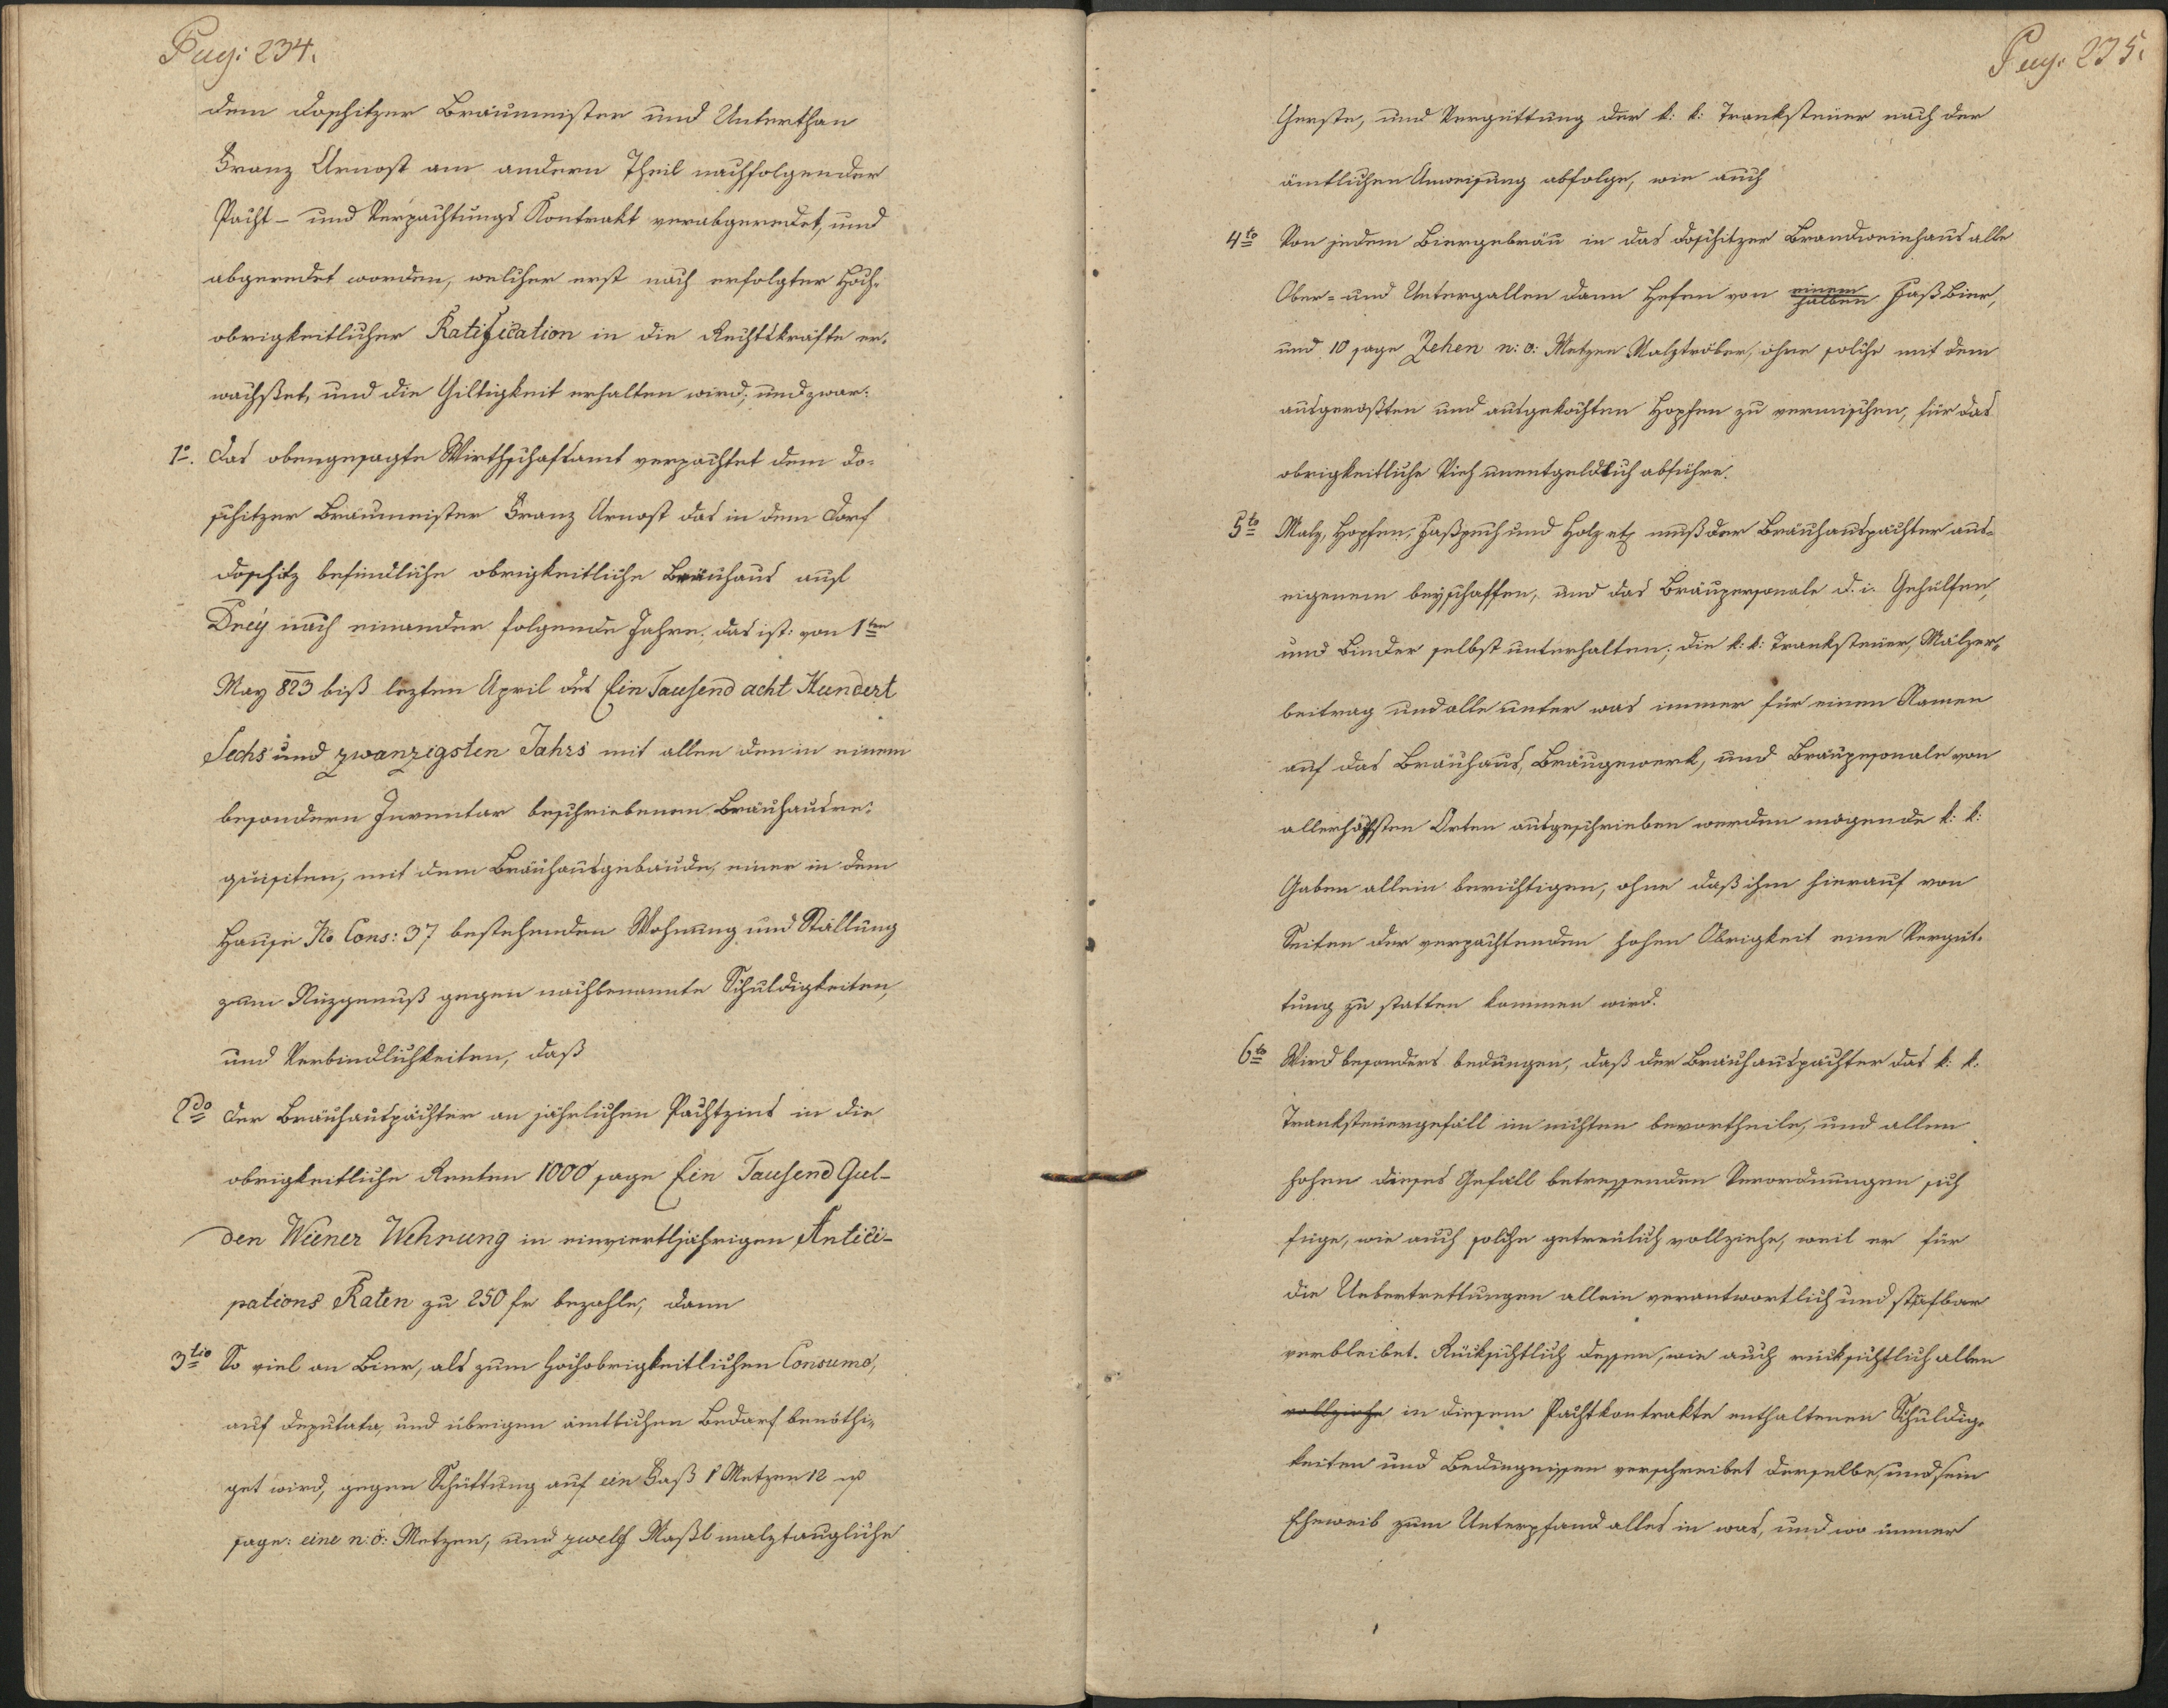 Pag: 234.
dem Doschitzer Bräumeister und Unterthan
Franz Arnost am andern Theil nachfolgender
Pacht- und Verpachtungs Kontrakt verabgeredet, und
abgeredet worden, welcher erst nach erfolgter Hoch-
obrigkeitlicher Ratification in die Rechtskräfte er-
wachset, und die Giltigkeit erhalten wird; und zwar:
1o. Das obengesagte Wirthschaftsamt verpachtet dem Do-
schitzer Bräumeister Franz Arnost das in dem Dorf
Doschitz befindliche obrigkeitliche Bräuhaus auf
Drey nach einander folgende Jahre. das ist: von 1ten
May 823 biß lezten April des Ein Tausend acht Hundert
Sechs und zwanzigsten Jahrs mit allen den in einem
besondern Inventar beschriebenen Bräuhausre-
quisiten, mit dem Bräuhausgebäude, einer in dem
Hause No. Cons: 37 bestehenden Wohnung und Stallung
zum Nuzgenuß gegen nachbenannte Schuldigkeiten,
und Verbindlichkeiten, daß
2do der Bräuhauspächter an jährlichen Pachtzins in die
obrigkeitliche Renten 1000 sage Ein Tausend Gul-
den Wiener Wehrung in einvierteljährigen Antici-
pations Raten zu 250 fr bezahle, dann
3tio So viel an Bier, als zum hochobrigkeitlichen Consumo,
auf Deputata, und übrigen ämtlichen Bedarf benöthi-
get wird, gegen Schüttung auf ein Faß 1 Metzen 12
sage: eine n: ö: Metzen, und zwelf Maßl malztaugliche
Pag. 235.
Gerste, und Vergüttung der k: k: Tranksteuer nach der
ämtlichen Anweisung abfolge, wie auch
4to Von jedem Biergebräu in das Doschitzer Brandweinhaus alle
Ober- und Untergallen dann Hefen von einem halben Faß Bier,
und 10 sage Zehen n: ö: Metzen Malztröber, ohne solche mit dem
ausgerößten und ausgekochten Hopfen zu vermischen, für das
obrigkeitliche Vieh unentgeldlich abführe.
5to Malz, Hopfen, Faßpech und Holz etz muß der Bräuhauspächter aus
eigenem beyschaffen, und das Bräupersonale d. i. Gehülfen,
und Binder selbst unterhalten; die k: k: Tranksteuer, Mälzer-
beitrag und alle unter was immer für einen Namen
auf das Bräuhaus, Bräugewerk, und Bräupesonale von
allerhöchsten Orten ausgeschrieben werden mögende k: k:
Gaben allein berichtigen, ohne daß ihm hierauf von
Seiten der verpachtenden hohen Obrigkeit eine Vergüt-
tung zu statten kommen wird.
6to Wird besonders bedungen, daß der Bräuhauspächter das k: k:
Tranksteuergefäll im nichten bevortheile, und allen
hohen dieses Gefäll betreffenden Verordnungen sich
füge, wie auch solche getreulich vollziehe, weil er für
die Uebertrettungen allein verantwortlich und strafbar
verbleibet. Rücksichtlich dessen, wie auch rücksichtlich allen
vollziehe in diesem Pachtkontrakte enthaltenen Schuldig-
keiten und Bedingnissen verschreibet derselbe, und sein
Eheweib zum Unterpfand alles in was, und wo immer